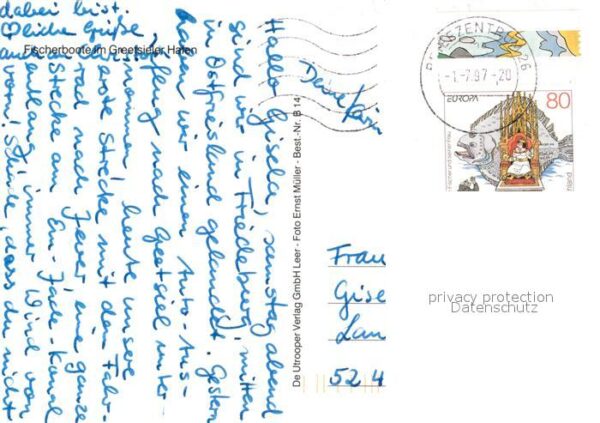 Fischerboote im Greetsieler Hafen
Hallo Gisela, samstag abend
sind wir in Friedeburg, mitten
in Ostfriesland gelandet. Gestern
haben wir einen Auto-Aus-
flug nach Greetsiel unter-
nommen, heute unsere
erste Strecke mit dem Fahr-
rad nach Jever, eine ganze
Strecke am Em-Jade-Kanal
entlang, immer Wind von
vorn! Schade, dass du nicht
dabei bist.
Liebe Grüße
auch
Deine Karin
De Utrooper Verlag GmbH Leer - Foto Ernst Müller - Best.-Nr. B 14
BRIEFZENTRUM 26
-1.-7.97-20
EUROPA
80
Fischer und seiner Frau
Frau
Gise
Lau
52 4
privacy protection
Datenschutz